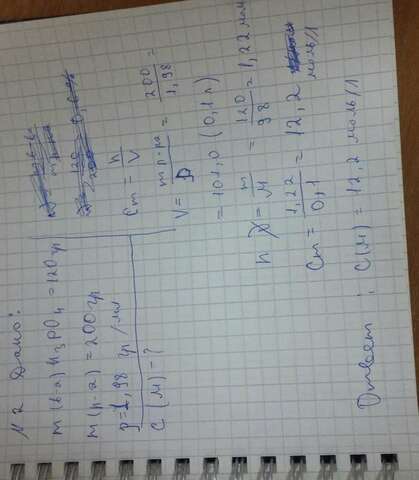 №2 Дано:
m(в-а) H₃PO₄ = 120 гр
m(р-а) = 200 гр
ρ = 1,98 гр/мл
C(M) - ?
Cm = n/V
V = m р-ра/ρ = 200/1,98 =
= 101,0 (0,1 л)
n = m/M = 120/98 = 1,22 моль
Cm = 1,22/0,1 = 12,2 моль/л
Ответ: C(M) = 12,2 моль/л